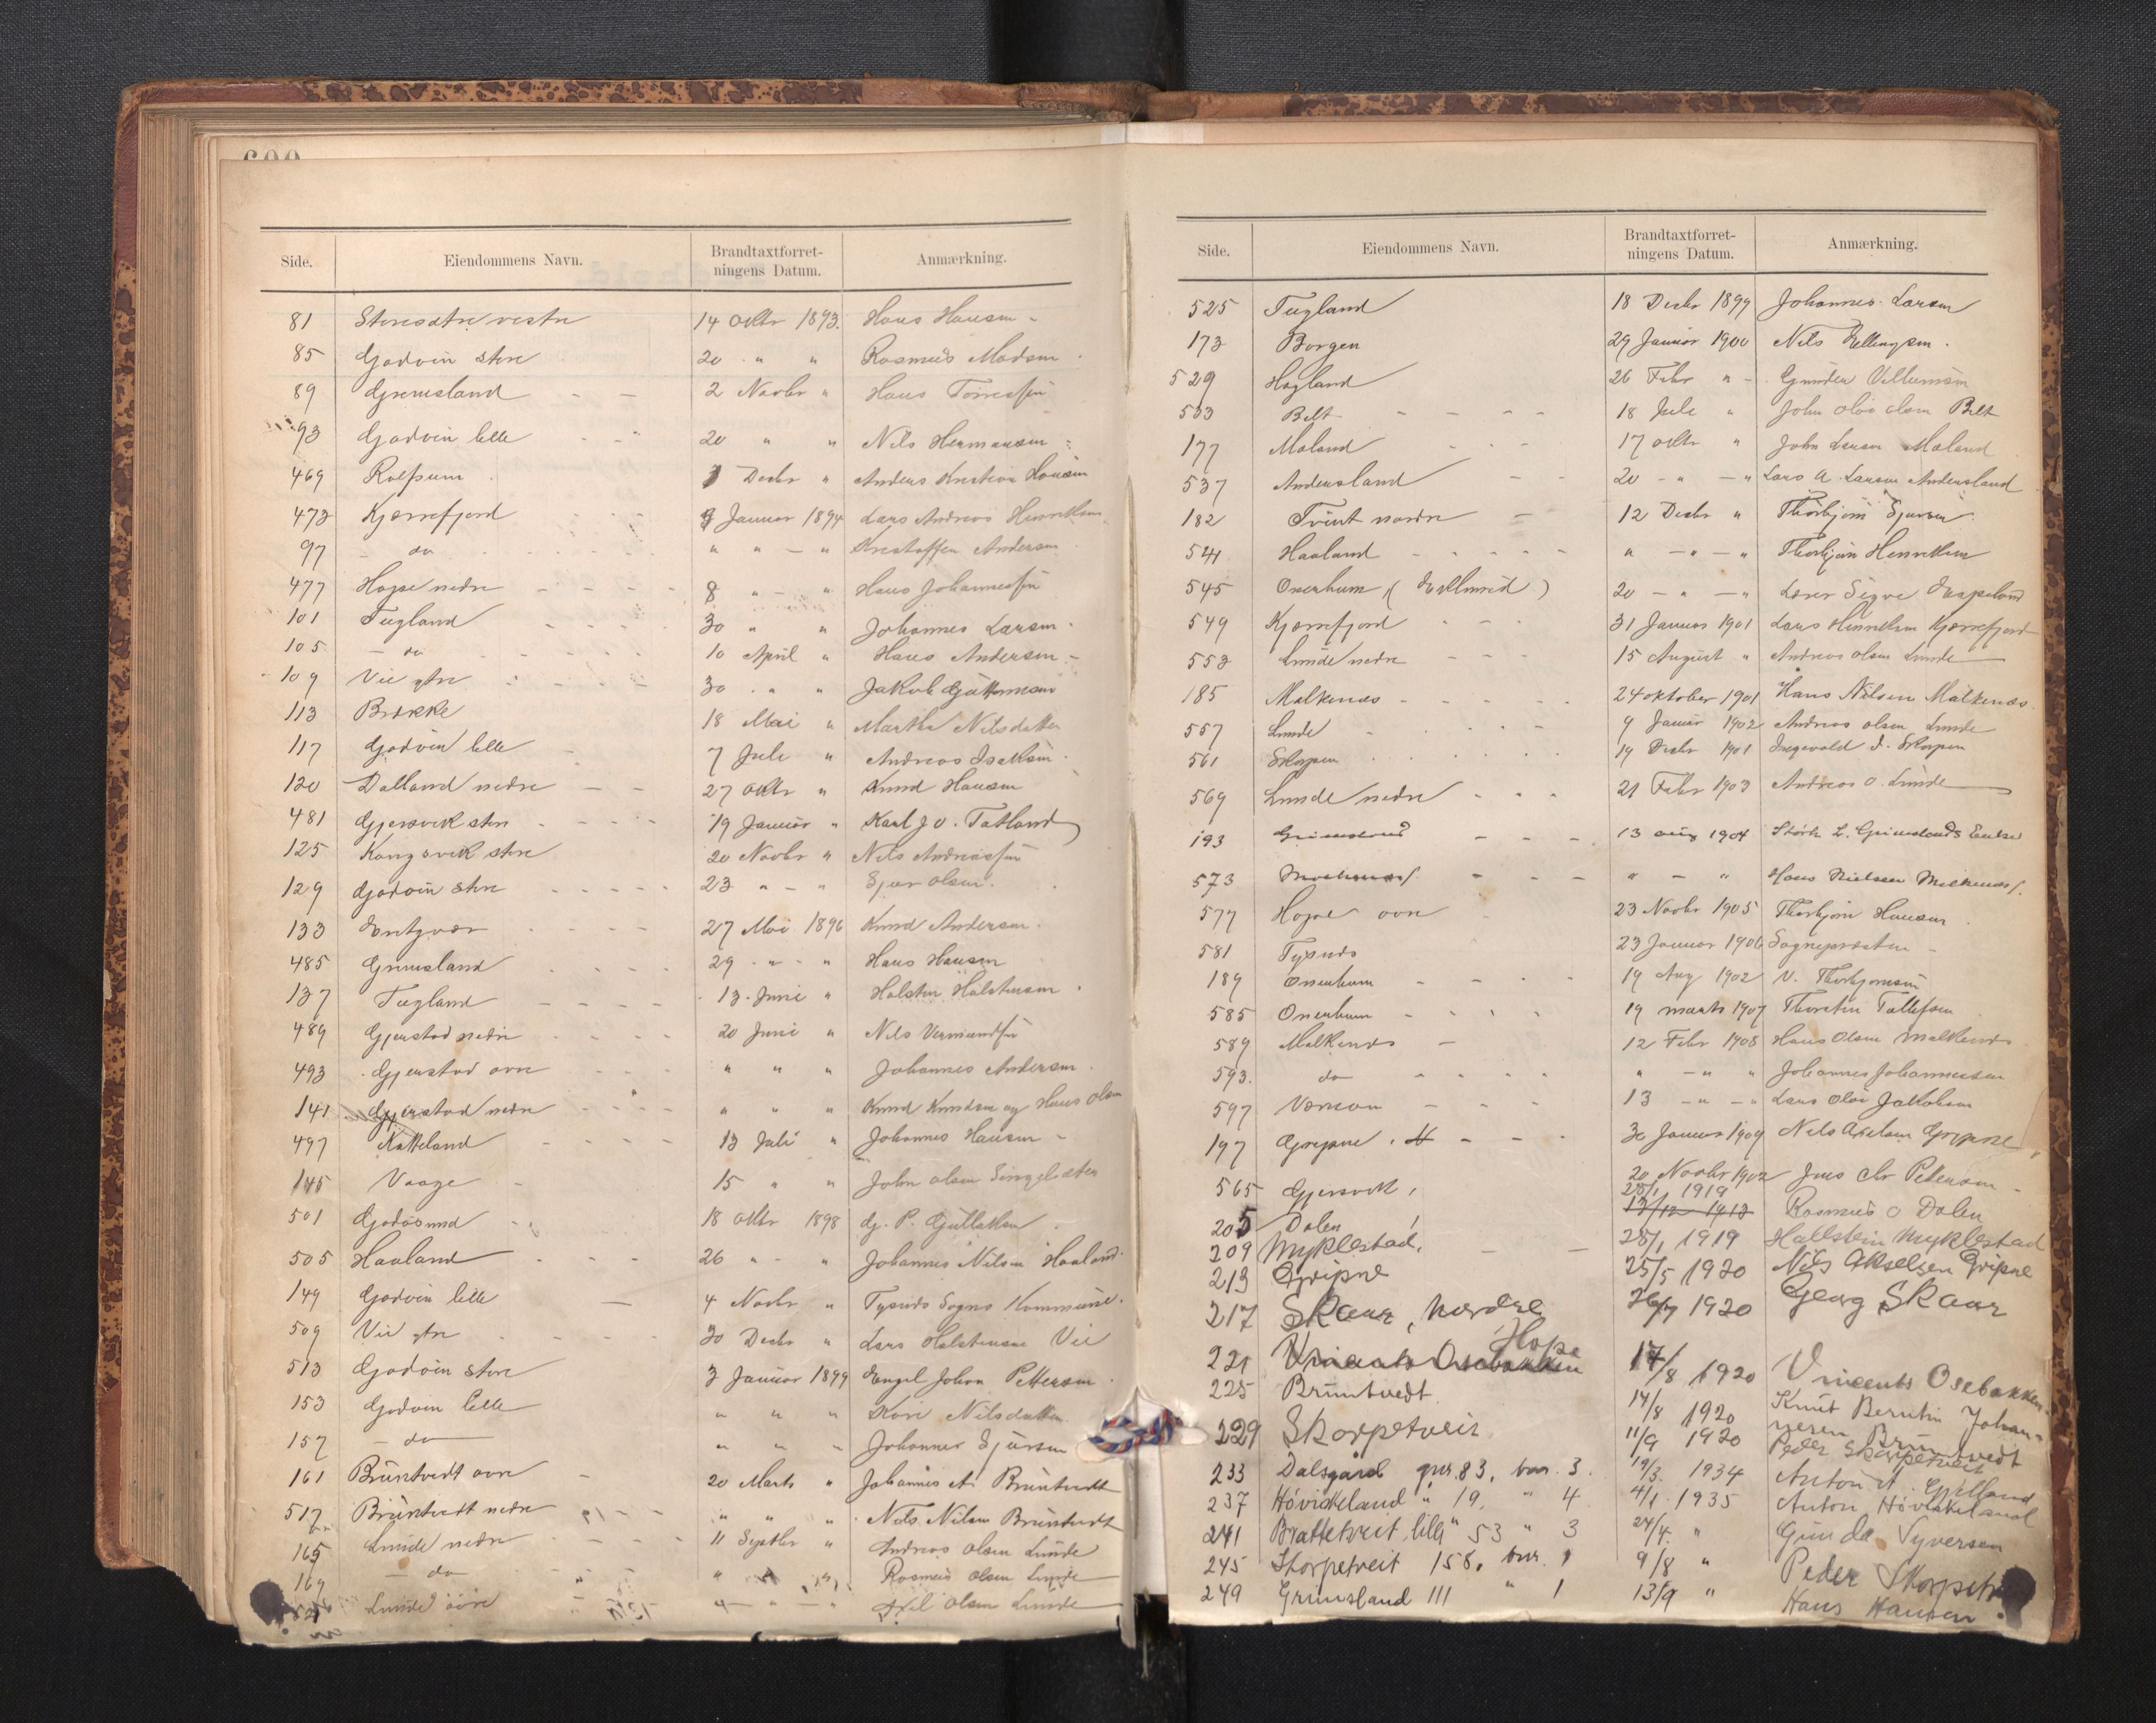 Side. Eiendommens Navn. Brandtaxtforret-ningens Datum. Anmærkning.
81 vestre 14 Oktr 1893. Hans Hansen
85 Godøen store 20 " " Rasmus Madsen
89 Grimsland 2 Novbr " Hans
93 Godøen lille 20 " " Nils Hermansen
469 Rolfsnæs Decbr " Anders Kristian Hansen
473 Kjærrefjord Januar 1894 Lars Andreas Henriksen
97 do " " " Kristoffer Andersen
477 Hope nedre 8 " " Hans Johannesen
101 Tegland 30 " " Johannes Larsen
105 do 10 April " Hans Andersen
109 Vie ytre 30 " " Jakob Guttormsen
113 Brekke 18 Mai " Martha Nilsdatter
117 Godøen lille 7 Juli " Andreas Isaksen
120 Dalland nedre 27 Oktr " Knud Hansen
481 Gjersvik store 19 Januar " Karl J. O. Tatland
125 Kongsvik store 20 Novbr " Nils Andreassen
129 Godøen store 23 " " Sjur Olsen
133 27 Mai 1896 Knud Andersen
485 Grimsland 29 " " Hans Hansen
137 Tegland 13 Juni " Halsten Halstensen
489 Gjerstad nedre 20 Juni " Nils
493 Gjerstad øvre " " " Johannes Andersen
141 Gjerstad nedre " " " Knud Knudsen og Hans Olsen
497 Natteland 13 Juli " Johannes Hansen
145 Vaage 15 " " John Olsen
501 Godøsund 18 Oktr 1898 G. P. Gullaksen
505 Haaland 26 " " Johannes Nilsen Haaland
149 Godøen lille 4 Novbr " Tysnes Sogns Kommune
509 Vie ytre 30 Decbr " Lars Halstensen Vie
513 Godøen store 3 Januar 1899 Engel Johan Pettersen
153 Godøen lille " " " Kari Nilsdatter
157 do " " " Johannes Sjursen
161 Bruntvedt øvre 20 Marts " Johannes A. Bruntvedt
517 Bruntvedt nedre " " " Nils Nilsen Bruntvedt
165 Lunde nedre 11 Septbr " Andreas Olsen Lunde
169 do " " " Rasmus Olsen Lunde
Lunde øvre " " " Axel Olsen Lunde
Side. Eiendommens Navn. Brandtaxtforret-ningens Datum. Anmærkning.
525 Tegland 18 Decbr 1899 Johannes Larsen
173 Borgen 29 Januar 1900 Nils Ellingsen
529 Hagland 26 Febr " Villumsen
533 Belt 18 Juli " John Olai Olsen Belt
177 Maland 17 Oktr " John Larsen Maland
537 Andersland 20 " " Lars A. Larsen Andersland
182 Tveit nordre 12 Decbr " Thorbjørn Sjursen
541 Haaland " " " Thorbjørn Henriksen
545 Onarheim ( ) 20 " " Lærer Sigve Espeland
549 Kjærrefjord 31 Januar 1901 Lars Henriksen Kjærrefjord
553 Lunde nedre 15 August " Andreas Olsen Lunde
185 Malkenes 24 oktober 1901 Hans Nilsen Malkenes
557 Lunde 9 Januar 1902 Andreas Olsen Lunde
561 Skorpen 19 Decbr 1901 Ingevald J. Skorpen
569 Lunde nedre 21 Febr 1903 Andreas O. Lunde
193 Grimsland 13 aug 1904 L. Grimslands Enke
573 Malkenes " " Hans Nielsen Malkenes
577 Hope øvre 23 Novbr 1905 Thorbjørn Hansen
581 Tysnes 23 Januar 1906 Sognepræsten
189 Onarheim 19 Aug 1902 N. Thorbjørnsen
585 Onarheim 19 marts 1907 Thorstein Tollefsen
589 Malkenes 12 Febr 1908 Hans Olsen Malkenes
593. do " " " Johannes Johannessen
597 13 " " Lars Olai Jakobsen
197 Gripne 30 Januar 1909 Nils Akselsen Gripne
565 Gjersvik 20 Novbr 1902 Jens Chr Petersen
205 Dalen 28/1 1919 13/12 1913 Rasmus O Dalen
209 Myklestad 28/1 1919 Hallstein Myklestad
213 Gripne 25/5 1920 Nils Akselsen Gripne
217 Skaar, nordre 1920 Georg Skaar
221 Vincents Osebakken Hope 17/8 1920 Vincents Osebakken
225 Bruntvedt 14/8 1920 Knut Berntin Johan=nesen Bruntvedt
229 Skorpetveit 11/9 1920 Peder Skorpetveit
233 Dalsgård gnr. 83, bnr. 3. 19/3 1934 Anton A. Epelland
237 Høviskeland " 19, " 4 4/1 1935 Anton Høviskeland
241 Brattetveit, lille " 53 " 3 24/4 " Gunda Syversen
245 Skorpetveit 158, bnr. 1 9/8 " Peder
249 Grimsland 111 " 1 13/9 " Hans Hansen